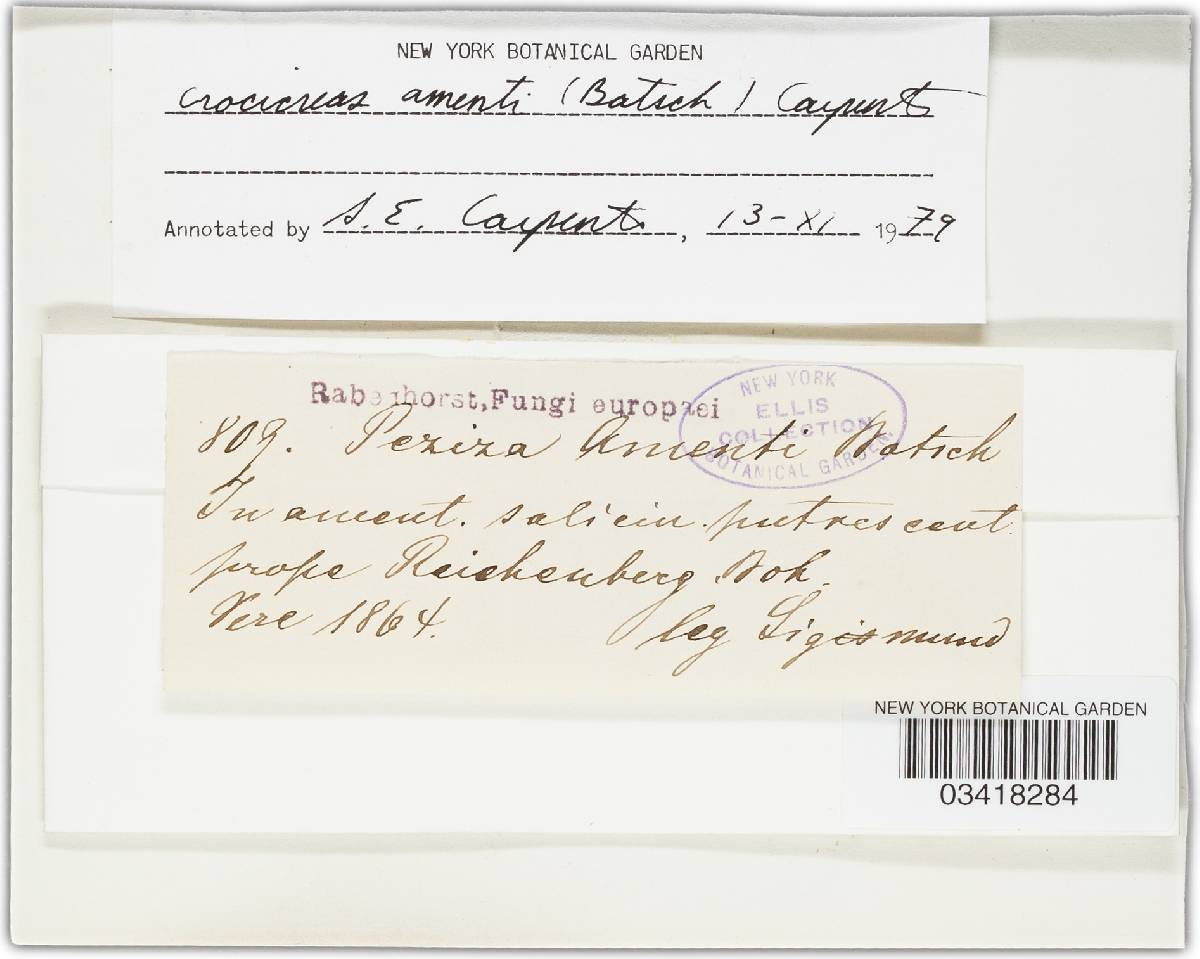 NEW YORK BOTANICAL GARDEN
Crocicreas amenti (Batsch) Carpent
Annotated by S. E. Carpent, 13-XI 1979
Rabenhorst, Fungi europaei
NEW YORK
ELLIS
COLLECTION
BOTANICAL GARDEN.
809. Peziza Amenti Batsch
In ament. salicin. putrescent.
prope Reichenberg Boh.
Vere 1864. leg Sigismund
NEW YORK BOTANICAL GARDEN
03418284